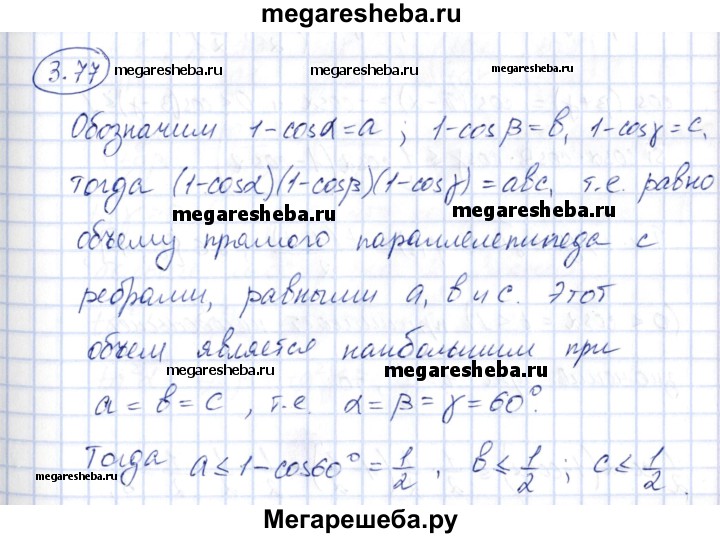 megaresheba.ru
3.77 megaresheba.ru megaresheba.ru megaresheba.ru
Обозначим 1-cosα=a ; 1-cosβ=в, 1-cosγ=c,
тогда (1-cosα)(1-cosβ)(1-cosγ)=aвc, т.е. равно
megaresheba.ru megaresheba.ru
объему прямого параллелепипеда с
ребрами, равными a, в и c. Этот
объем является наибольшим при
megaresheba.ru megaresheba.ru
a = в = c , т.е. α = β = γ = 60°.
Тогда a ≤ 1 - cos60° = 1/2 , в ≤ 1/2 ; c ≤ 1/2 .
megaresheba.ru
Мегарешеба.ру